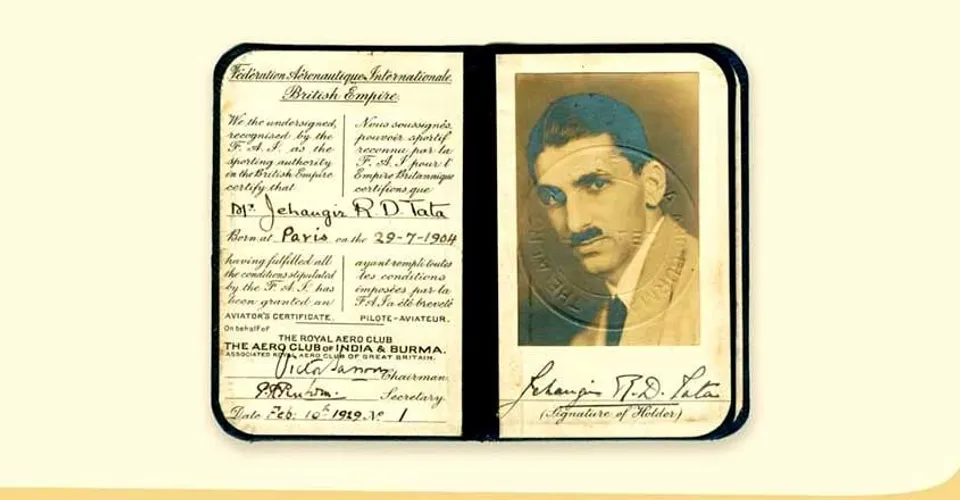 Fédération Aéronautique Internationale
British Empire
We the undersigned,
recognised by the
F. A. I. as the
sporting authority
in the British Empire
certify that
Nous soussignés,
pouvoir sportif
reconnu par la
F. A. I pour l'
Empire Britannique
certifions que
Mr. Jehangir R D. Tata
Born at Paris on the 29-7-1904
having fulfilled all
the conditions stipulated
by the F. A. I. has
been granted an
AVIATOR'S CERTIFICATE.
ayant rempli toutes
les conditions
imposées par la
F.A.I a été breveté
PILOTE-AVIATEUR.
On behalf of
THE ROYAL AERO CLUB
THE AERO CLUB OF INDIA & BURMA.
ASSOCIATED ROYAL AERO CLUB OF GREAT BRITAIN.
Victor Sassoon Chairman
Secretary.
Date Feb: 10th 1929. No 1
Jehangir R. D. Tata
(Signature of Holder)